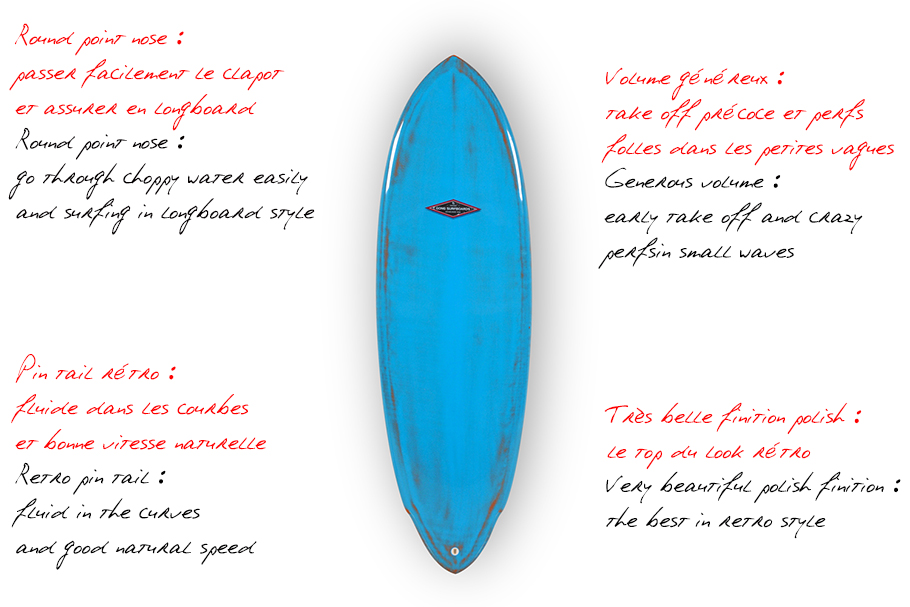 Round point nose :
passer facilement le clapot
et assurer en longboard
Round point nose :
go through choppy water easily
and surfing in longboard style
Volume généreux :
take off précoce et perfs
folles dans les petites vagues
Generous volume :
early take off and crazy
perfsin small waves
Pin tail rétro :
fluide dans les courbes
et bonne vitesse naturelle
Retro pin tail :
fluid in the curves
and good natural speed
Très belle finition polish :
le top du look rétro
Very beautiful polish finition :
the best in retro style